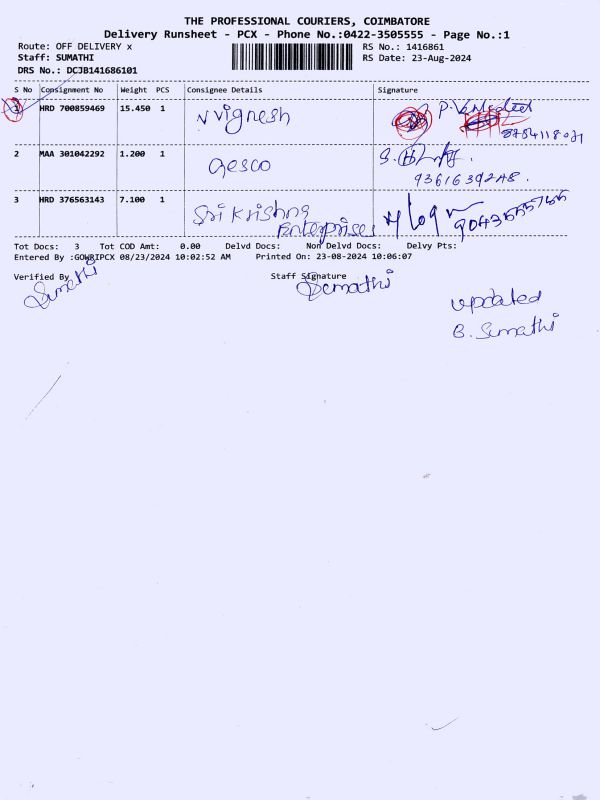 THE PROFESSIONAL COURIERS, COIMBATORE
Delivery Runsheet - PCX - Phone No.:0422-3505555 - Page No.:1
Route: OFF DELIVERY x RS No.: 1416861
Staff: SUMATHI RS Date: 23-Aug-2024
DRS No.: DCJB141686101
S No Consignment No Weight PCS Consignee Details Signature
1 HRD 700859469 15.450 1 N Vignesh
2 MAA 301042292 1.200 1 Gesco
3 HRD 376563143 7.100 1 Sri Krishna
Enterprises
Tot Docs: 3 Tot COD Amt: 0.00 Delvd Docs: Non Delvd Docs: Delvy Pts:
Entered By :GOWRIPCX 08/23/2024 10:02:52 AM Printed On: 23-08-2024 10:06:07
Verified By Staff Signature
Sumathi Sumathi
updated
B. Sumathi